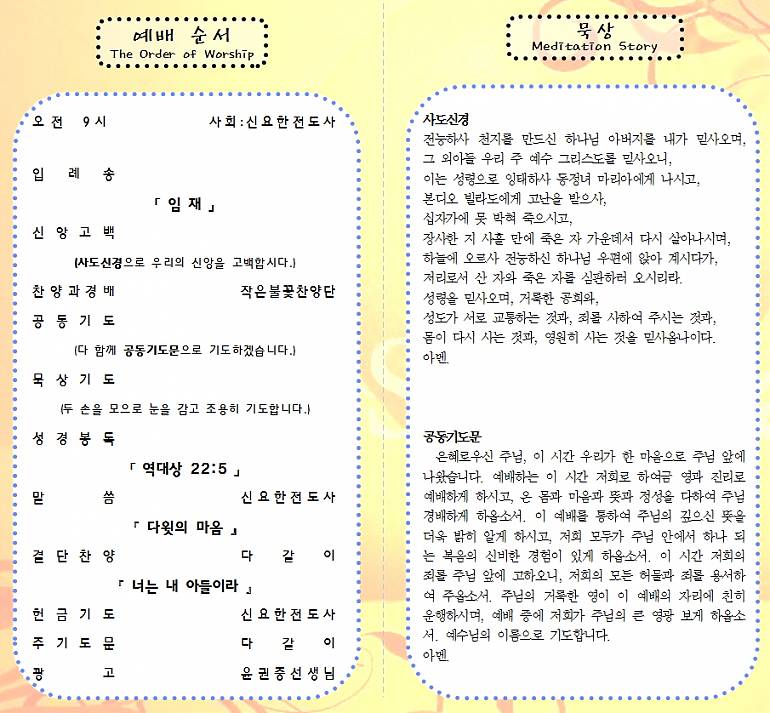 예배 순서
The Order of Worship
오전 9시 사회:신요한전도사
입 례 송
「 임 재 」
신 앙 고 백
(사도신경으로 우리의 신앙을 고백합시다.)
찬양과경배 작은불꽃찬양단
공 동 기 도
(다 함께 공동기도문으로 기도하겠습니다.)
묵 상 기 도
(두 손을 모으로 눈을 감고 조용히 기도합니다.)
성 경 봉 독
「 역대상 22:5 」
말 씀 신요한전도사
「 다윗의 마음 」
결 단 찬 양 다 같 이
「 너는 내 아들이라 」
헌 금 기 도 신요한전도사
주 기 도 문 다 같 이
광 고 윤권중선생님
묵상
Meditation Story
사도신경
전능하사 천지를 만드신 하나님 아버지를 내가 믿사오며,
그 외아들 우리 주 예수 그리스도를 믿사오니,
이는 성령으로 잉태하사 동정녀 마리아에게 나시고,
본디오 빌라도에게 고난을 받으사,
십자가에 못 박혀 죽으시고,
장사한 지 사흘 만에 죽은 자 가운데서 다시 살아나시며,
하늘에 오르사 전능하신 하나님 우편에 앉아 계시다가,
저리로서 산 자와 죽은 자를 심판하러 오시리라.
성령을 믿사오며, 거룩한 공회와,
성도가 서로 교통하는 것과, 죄를 사하여 주시는 것과,
몸이 다시 사는 것과, 영원히 사는 것을 믿사옵나이다.
아멘
공동기도문
은혜로우신 주님, 이 시간 우리가 한 마음으로 주님 앞에
나왔습니다. 예배하는 이 시간 저희로 하여금 영과 진리로
예배하게 하시고, 온 몸과 마음과 뜻과 정성을 다하여 주님
경배하게 하옵소서. 이 예배를 통하여 주님의 깊으신 뜻을
더욱 밝히 알게 하시고, 저희 모두가 주님 안에서 하나 되
는 복음의 신비한 경험이 있게 하옵소서. 이 시간 저희의
죄를 주님 앞에 고하오니, 저희의 모든 허물과 죄를 용서하
여 주옵소서. 주님의 거룩한 영이 이 예배의 자리에 친히
운행하시며, 예배 중에 저희가 주님의 큰 영광 보게 하옵소
서. 예수님의 이름으로 기도합니다.
아멘